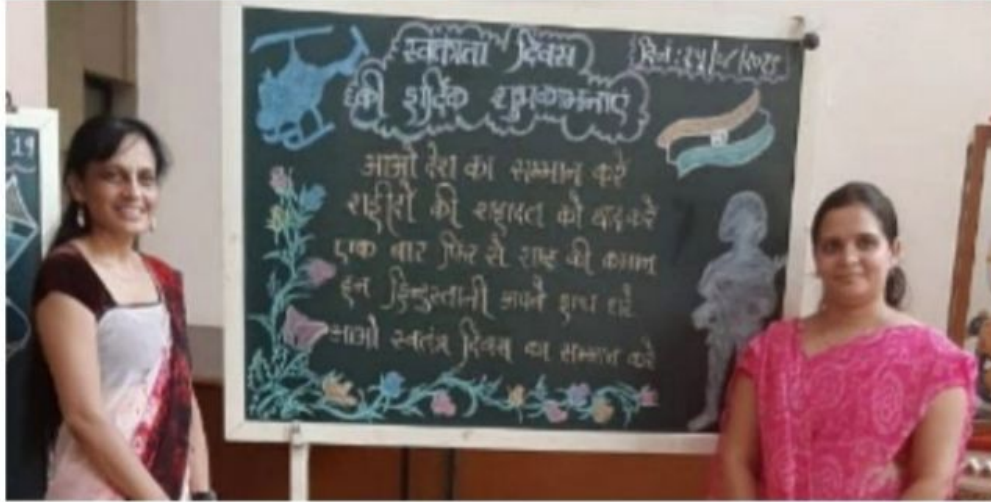 19
स्वतंत्रता दिवस
की हार्दिक शुभकामनाएं
आओ देश का सम्मान करें
शहीदों की शहादत को याद करें
एक बार फिर से राष्ट्र की कमान
हम हिन्दुस्तानी अपने हाथ धरें
आओ स्वतंत्र दिवस का सम्मान करें